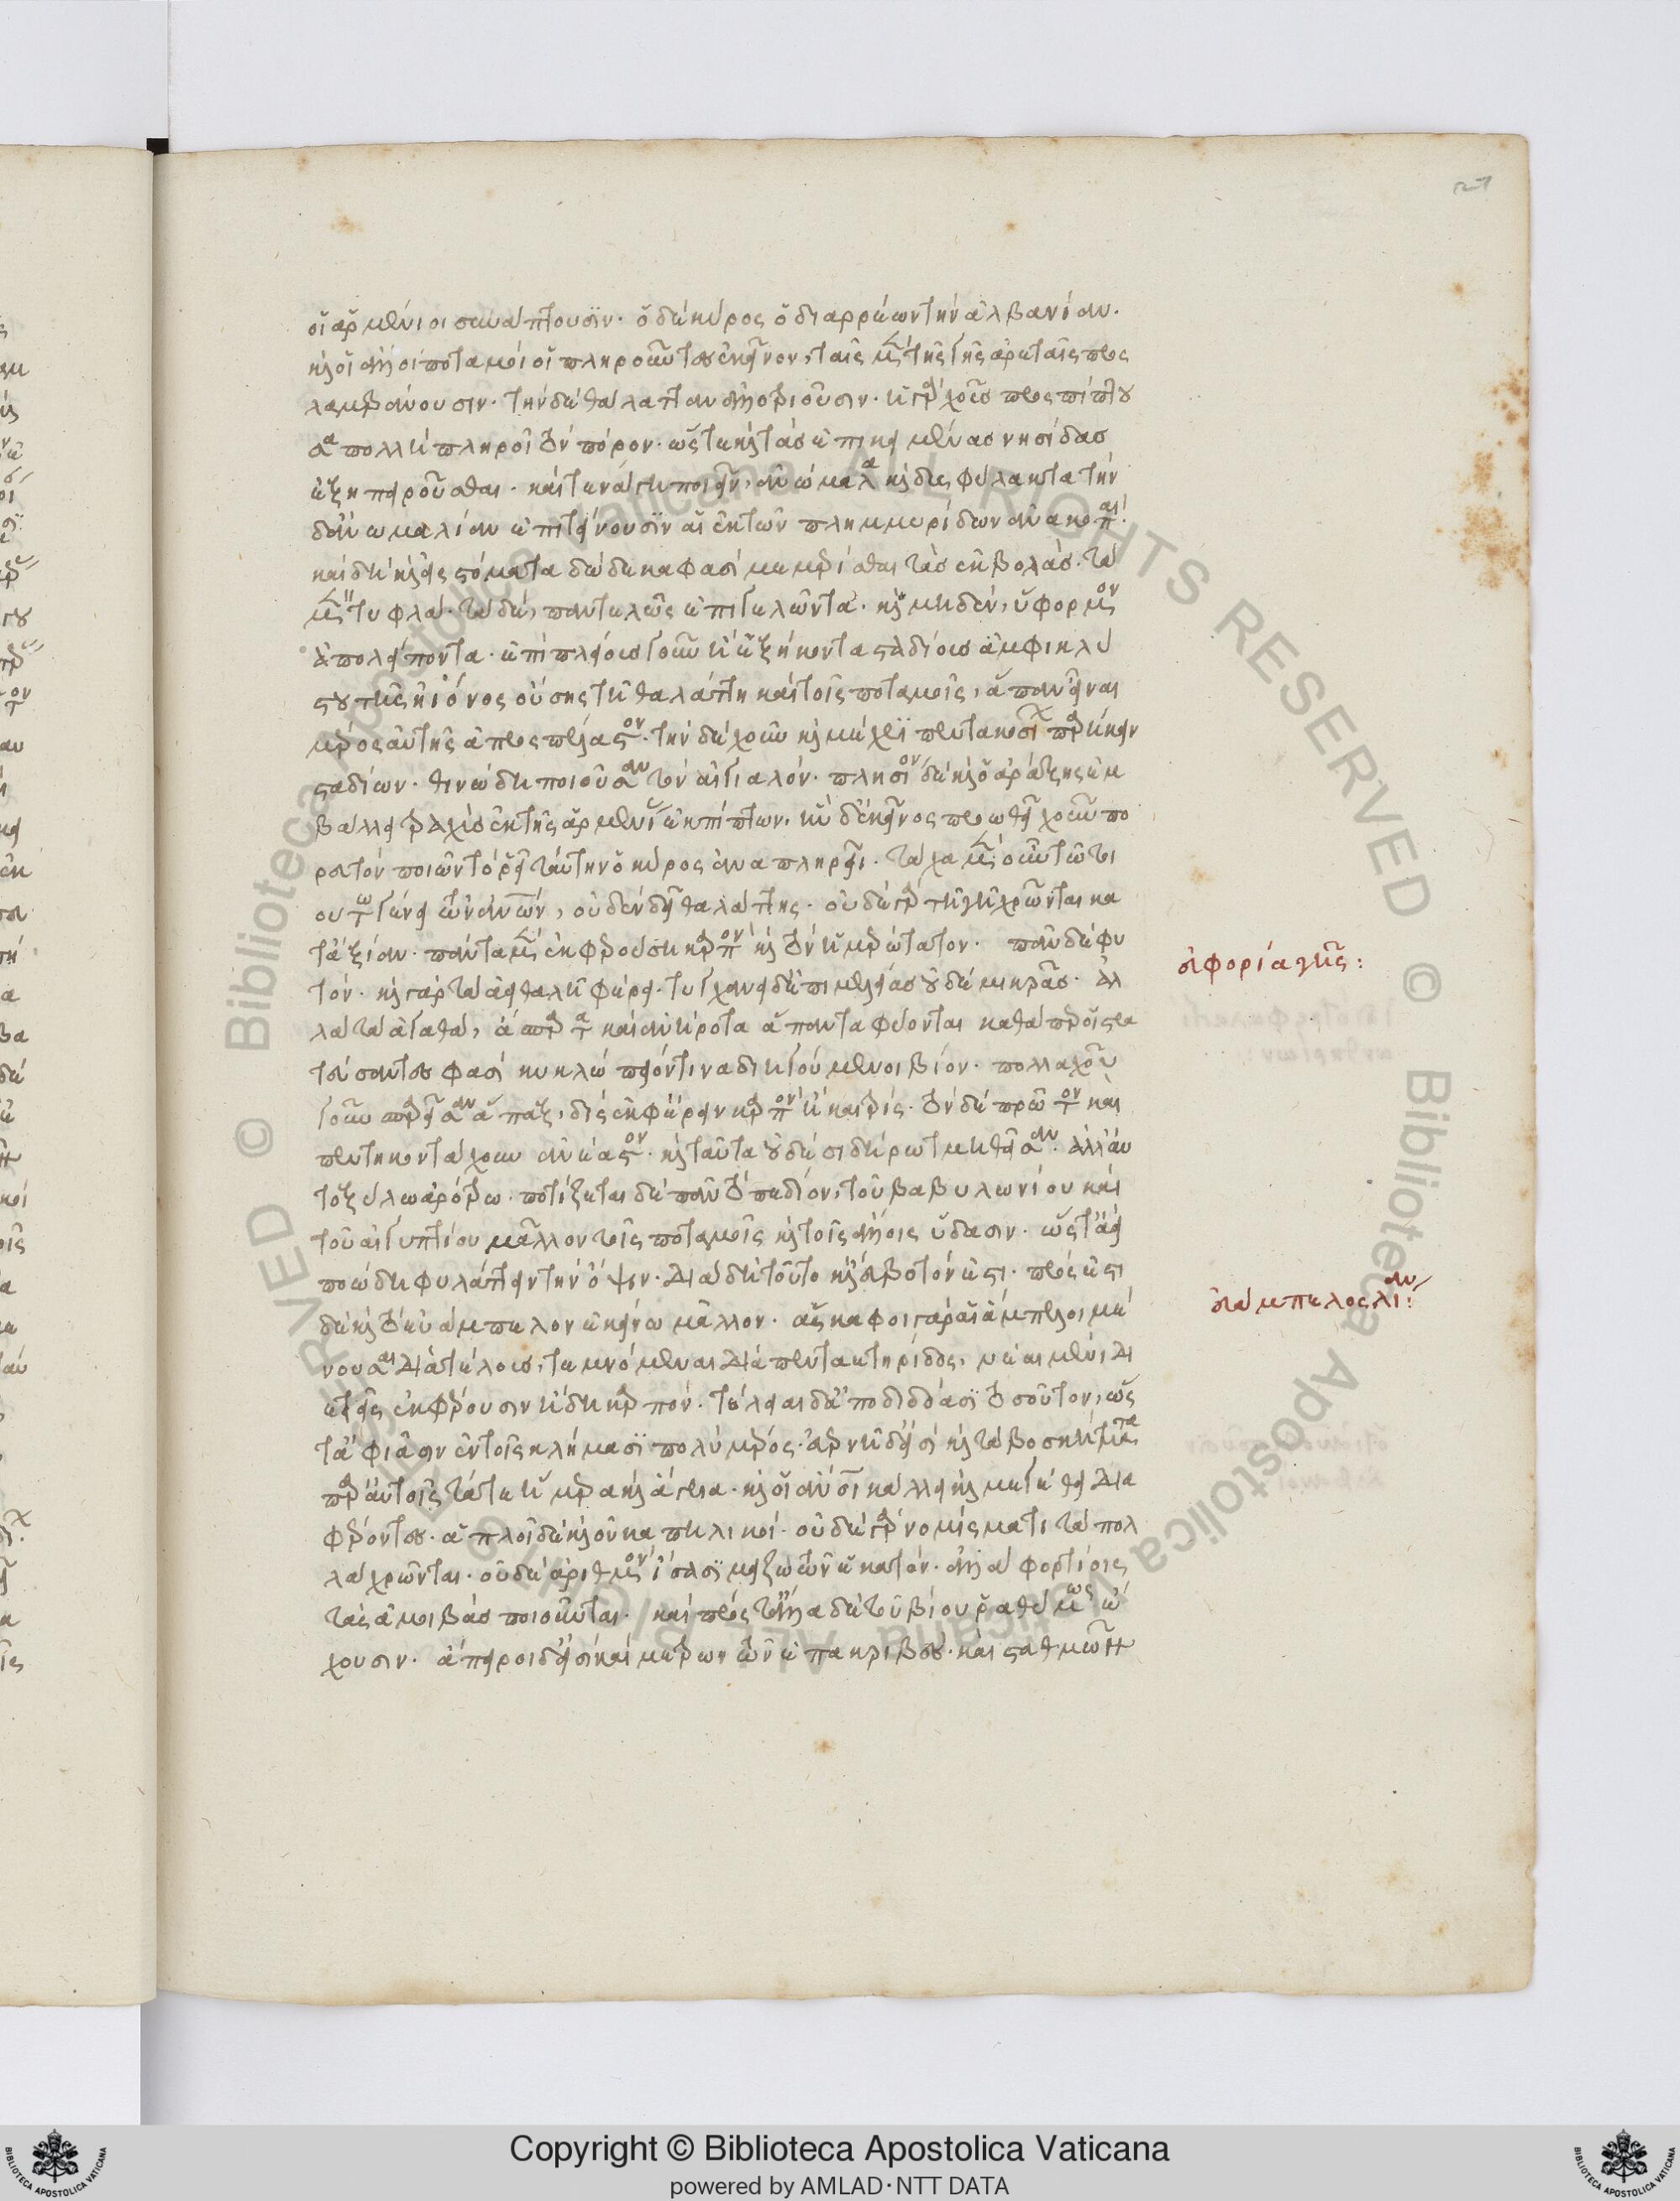 οἱ ἀρμένιοι συνάπτουσιν· ὁ δὲ κῦρος ὁ διαρρέων τὴν ἀλβανίαν·
καὶ οἱ ἄλλοι ποταμοὶ οἱ πληροῦντες ἐκεῖνον, ταῖς μὲν τῆς γῆς ἀρεταῖς προς
λαμβάνουσιν· τὴν δὲ θάλατταν ἀλλοτριοῦσιν· ἡ γὰρ χοῦς προςπίπτου
σα πολλὴ πληροῖ τὸν πόρον· ὥστε καὶ τὰς ἐπικειμένας νησίδας
ἐξηπειροῦσθαι· καὶ τενάγη ποιεῖν, ἀνώμαλα καὶ δυςφύλακτα τὴν
δ' ἀνωμαλίαν ἐπιτείνουσιν αἱ ἐκ τῶν πλημμυρίδων ἀνακοπαί·
καὶ δὴ καὶ εἰς στόματα δώδεκα φασὶ μεμερίσθαι τὰς ἐκβολάς· τὰ
μὲν τυφλά· τὰ δὲ, παντελῶς ἐπιγελῶντα· καὶ μηδὲν, ὕφορμον
ἀπολείποντα· ἐπὶ πλείους γοῦν ἢ ἑξήκοντα σταδίους ἀμφικλύ
στου τῆς ἠιόνος οὔσης τῆ θαλάττη καὶ τοῖς ποταμοῖς, ἅπαν εἶναι
μέρος αὐτῆς ἀπροςπέλαστον· τὴν δὲ χοῦν καὶ μέχρι πεντακοσίων παρήκειν
σταδίων· θινώδη ποιοῦσαν τὸν αἰγιαλόν· πλησίον δὲ καὶ ὁ ἀράξης ἐμ
βάλλει τραχὺς ἐκ τῆς ἀρμενίας ἐκπίπτων· ἣν δ' ἐκεῖνος προωθεῖ χοῦν πο
ρευτὸν ποιῶν τὸ ῥεῖθρον ταύτην ὁ κῦρος ἀναπληροῖ· τάχα μὲν οὖν τῶ τοι
ούτω γένει ἀνθρώπων, οὐδὲν δεῖ θαλάττης· οὐδὲ γὰρ τῆ γῆ χρῶνται κα
τ' ἀξίαν· πάντα μὲν ἐκφερούση καρπὸν καὶ τὸν ἡμερώτατον· πᾶν δὲ φυ
τόν· καὶ γὰρ τὰ ἀειθαλῆ φέρει· τυγχάνει δ' ἐπιμελείας οὐδὲ μικρᾶς· ἀλ
λὰ τὰ ἀγαθὰ, ἄσπαρτα καὶ ἀνήροτα ἅπαντα φύονται καθάπερ οἱ στρα
τεύσαντες φασὶ κυκλώπειόν τινα διηγούμενοι βίον· πολλαχοῦ
γοῦν σπαρεῖσαν ἅπαξ, δὶς ἐκφέρειν καρπὸν ἢ καὶ τρίς· τὸν δὲ πρῶτον καὶ
πεντηκοντάχουν ἀνέαστον· καὶ ταῦτα οὐδὲ σιδήρω τμηθεῖσαν· ἀλλ' αὐ
τοξύλω ἀρότρω· ποτίζεται δὲ πᾶν τὸ πεδίον, τοῦ βαβυλωνίου καὶ
τοῦ αἰγυπτίου μᾶλλον τοῖς ποταμοῖς καὶ τοῖς ἄλλοις ὕδασιν· ὥστ' ἀεὶ
ποώδη φυλάττειν τὴν ὄψιν· διὰ δὲ τοῦτο καὶ εὔβοτόν ἐστι· πρός ἐστι
δὲ καὶ τὸ εὐάμπελον ἐκείνω μᾶλλον· ἄσκαφοι γὰρ αἱ ἄμπελοι μέ
νουσαι διὰ τέλους, τεμνόμεναι διὰ πενταετηρίδος, νέαι μὲν, δι
ετεῖς ἐκφέρουσιν ἤδη καρπόν· τέλειαι δ' ἀποδιδόασι τοσοῦτον, ὥς
τ' ἀφιᾶσιν ἐν τοῖς κλήμασι πολὺ μέρος· εὐερνῆ δ' εἰσὶ καὶ τὰ βοσκήματα
παρ' αὐτοῖς τά τε ἥμερα καὶ ἄγρια· καὶ οἱ ἄνθρωποι κάλλει καὶ μεγέθει δια
φέροντες· ἁπλοῖ δὲ καὶ οὐ καπηλικοί· οὐδὲ γὰρ νομίσματι τὰ πολ
λὰ χρῶνται· οὐδὲ ἀριθμὸν ἴσασι μείζω τῶν ἑκατόν· ἀλλὰ φορτίοις
τὰς ἀμοιβὰς ποιοῦνται· καὶ πρὸς τἄλλα δὲ τὰ τοῦ βίου ῥαθύμως ἔ
χουσιν· ἄπειροι δ' εἰσὶ καὶ μέτρων τῶν ἐπ' ἀκριβὲς· καὶ σταθμῶν
εὐφορία γῆς:
εὐάμπελος λίαν:
Copyright © Biblioteca Apostolica Vaticana
powered by AMLAD·NTT DATA